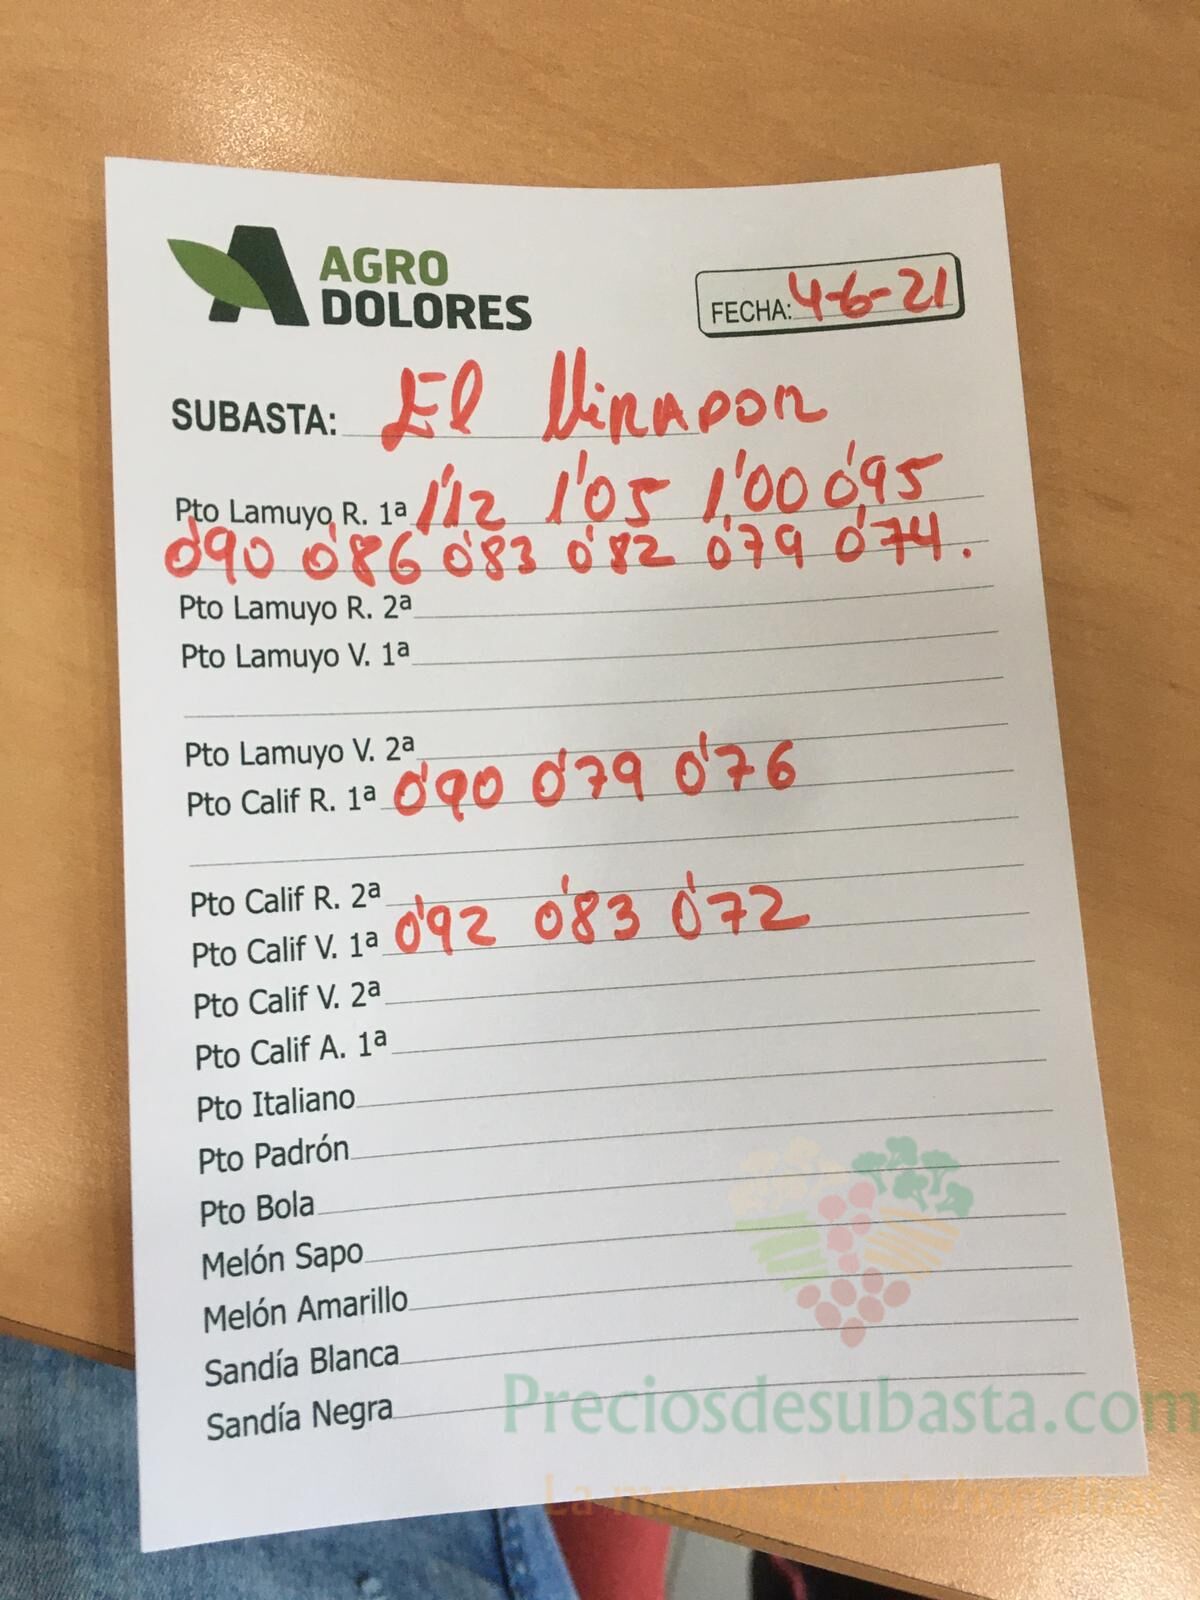 AGRO
DOLORES
FECHA: 4-6-21
SUBASTA: El Mirador
Pto Lamuyo R. 1ª 1'12 1'05 1'00 0'95
0'90 0'86 0'83 0'82 0'79 0'74.
Pto Lamuyo R. 2ª
Pto Lamuyo V. 1ª
Pto Lamuyo V. 2ª
Pto Calif R. 1ª 0'90 0'79 0'76
Pto Calif R. 2ª
Pto Calif V. 1ª 0'92 0'83 0'72
Pto Calif V. 2ª
Pto Calif A. 1ª
Pto Italiano
Pto Padrón
Pto Bola
Melón Sapo
Melón Amarillo
Sandía Blanca
Sandía Negra
Preciosdesubasta.com
La mayor web de hortalizas